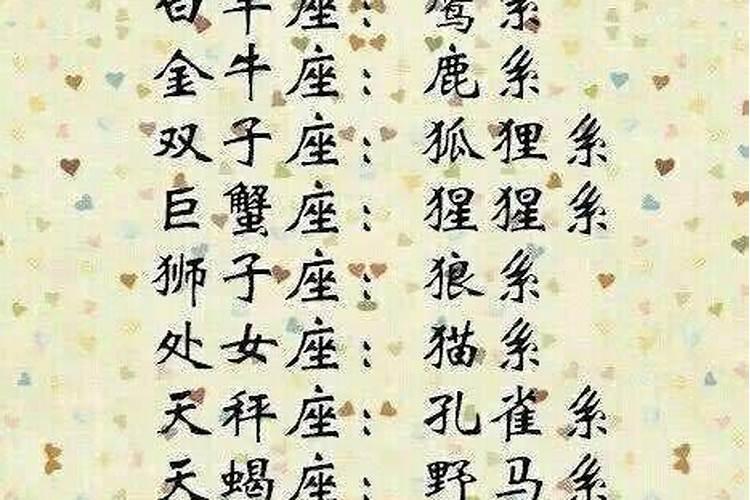 白羊座：鹰系
金牛座：鹿系
双子座：狐狸系
巨蟹座：猩猩系
狮子座：狼系
处女座：猫系
天秤座：孔雀系
天蝎座：野马系